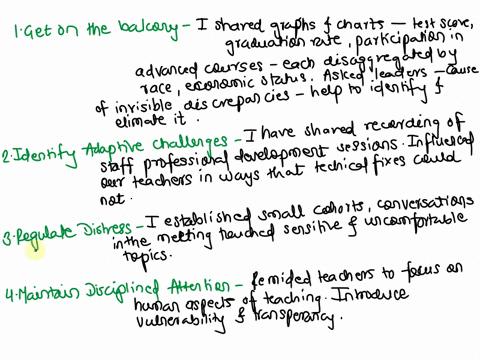 1. Get on the balcony - I shared graphs & charts - test score,
graduation rate, participation in
advanced courses - each disaggregated by
race, economic status. Asked leaders - cause
of invisible discrepancies - help to identify &
elimate it.
2. Identify Adaptive challenges - I have shared recording of
staff professional development sessions. Influenced
our teachers in ways that techical fixes could
not.
3. Regulate Distress - I established small cohorts, conversations
in the meeting touched sensitive & uncomfortable
topics.
4. Maintain Disciplined Attention - Remided teachers to focus on
human aspects of teaching. Introduce
vulnerability & transperancy.